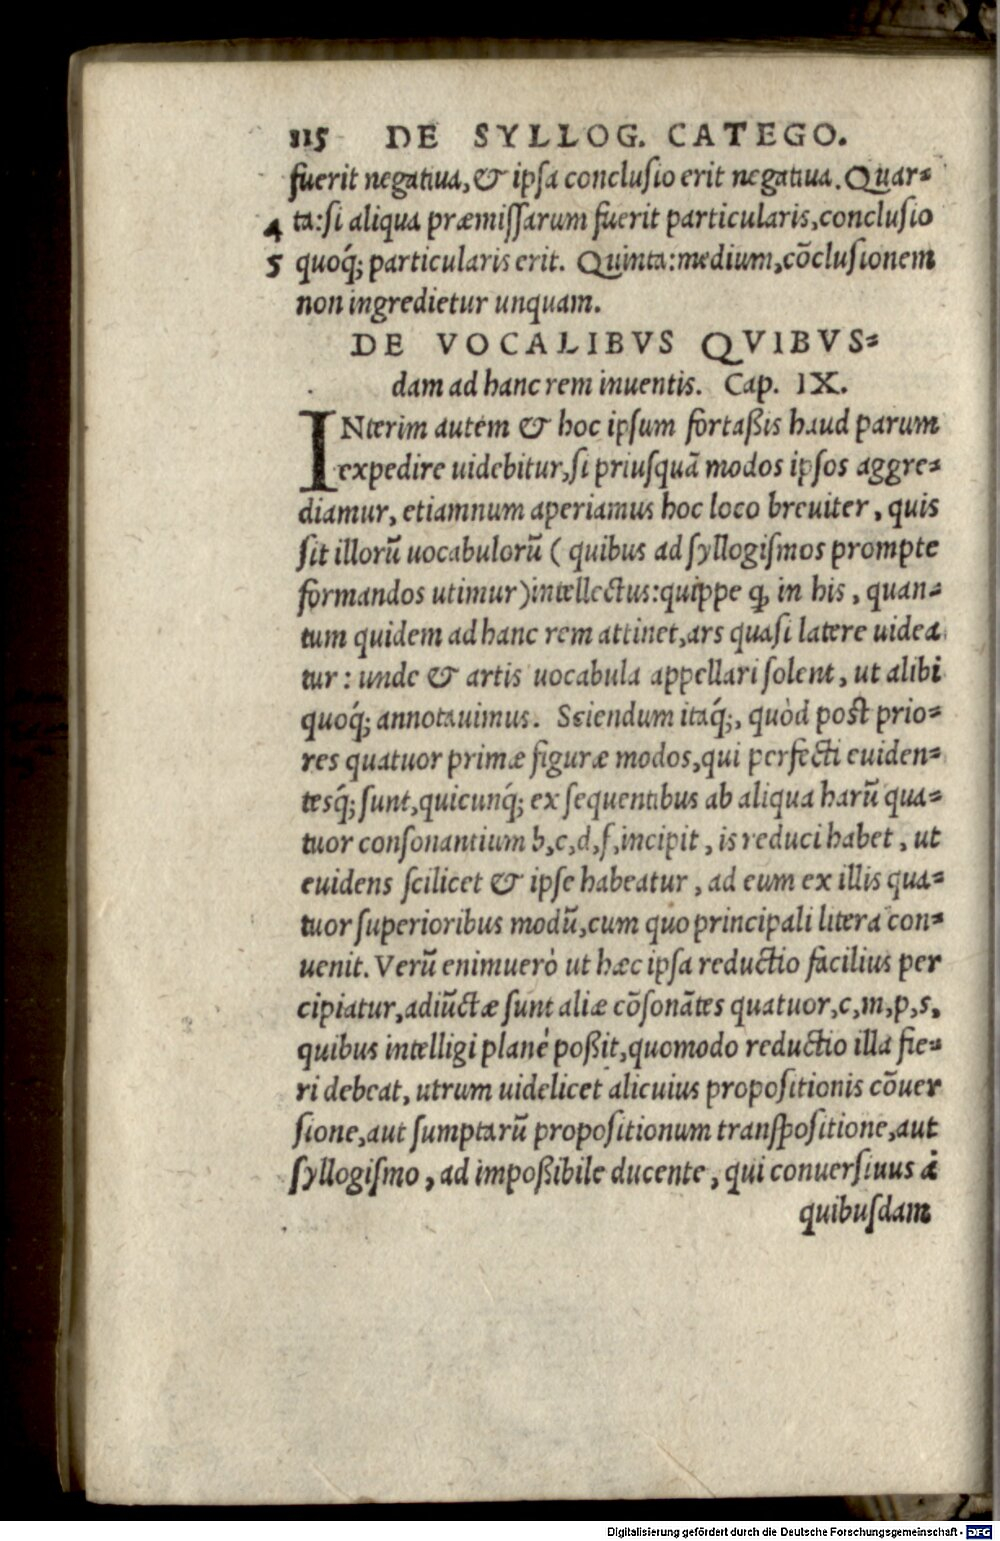 115 DE SYLLOG. CATEGO.
fuerit negatiua, & ipſa concluſio erit negatiua. Quar⸗
4 ta: ſi aliqua præmiſſarum fuerit particularis, concluſio
5 quoq́; particularis erit. Quinta: medium, cõcluſionem
non ingredietur unquam.
DE VOCALIBVS QVIBVS⸗
dam ad hanc rem inuentis. Cap. IX.
INterim autem & hoc ipſum fortaßis haud parum
expedire uidebitur, ſi priuſquã modos ipſos aggre⸗
diamur, etiamnum aperiamus hoc loco breuiter, quis
ſit illorũ uocabulorũ (quibus ad ſyllogiſmos prompte
formandos utimur) intellectus: quippe ꝙ in his, quan⸗
tum quidem ad hanc rem attinet, ars quaſi latere uidea
tur: unde & artis uocabula appellari ſolent, ut alibi
quoq́; annotauimus. Sciendum itaq́;, quòd poſt prio⸗
res quatuor primæ figuræ modos, qui perfecti euiden⸗
tesq́; ſunt, quicunq́; ex ſequentibus ab aliqua harũ qua⸗
tuor conſonantium b, c, d, f, incipit, is reduci habet, ut
euidens ſcilicet & ipſe habeatur, ad eum ex illis qua⸗
tuor ſuperioribus modũ, cum quo principali litera con⸗
uenit. Verũ enimuerò ut hæc ipſa reductio facilius per
cipiatur, adiũctæ ſunt aliæ cõſonãtes quatuor, c, m, p, s,
quibus intelligi planè poßit, quomodo reductio illa fie⸗
ri debeat, utrum uidelicet alicuius propoſitionis cõuer
ſione, aut ſumptarũ propoſitionum tranſpoſitione, aut
ſyllogiſmo, ad impoßibile ducente, qui conuerſiuus à
quibuſdam
Digitalisierung gefördert durch die Deutsche Forschungsgemeinschaft - DFG